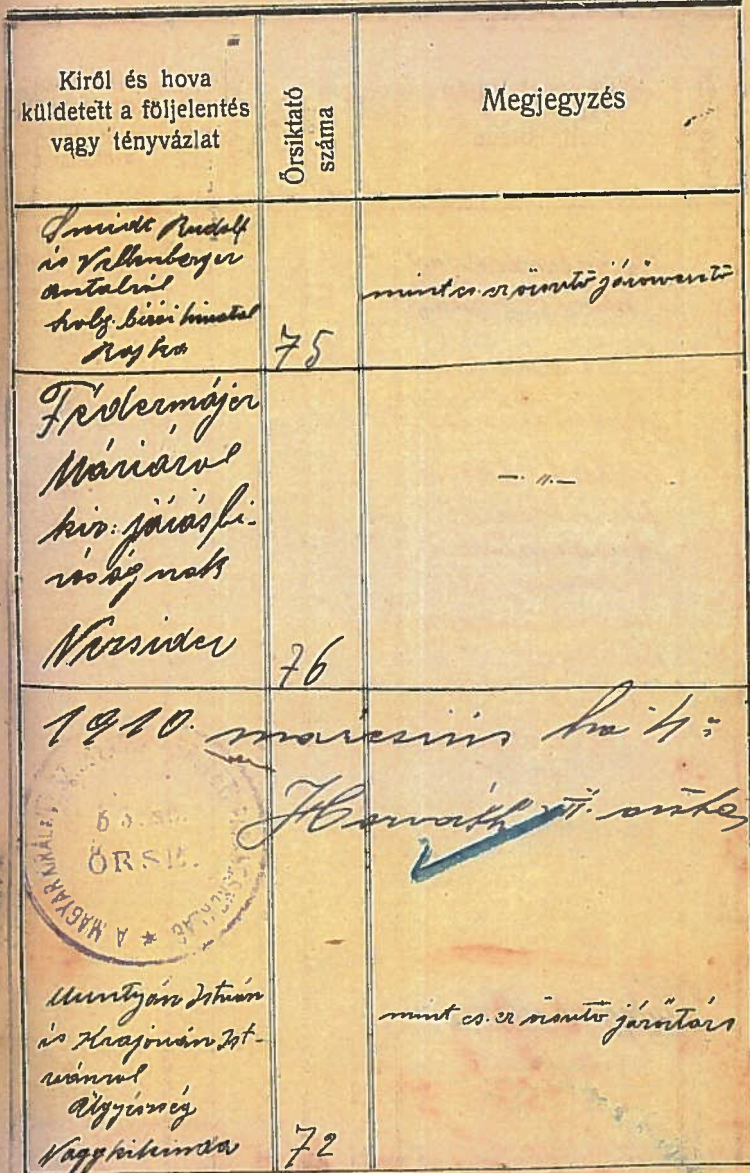 Kiről és hova
küldetett a följelentés
vagy tényvázlat
Őrsiktató
száma
Megjegyzés
Smidt Rudolf
és Vellenberger
Antalról
szolg. bírói hivatal
Rajka
75
mint cs. er őrsvető járőrvezető
Federmájer
Máriárol
kir: járásbi-
róság nak
Nezsider
76
— „ —
1910. március hó 4.
Horváth őrm
A MAGYAR KIRÁLYI
ŐRSE.
Muntyán István
és Krajován Ist-
vánrol
Ügyészség
Nagykikinda
72
mint cs. er járőrtárs